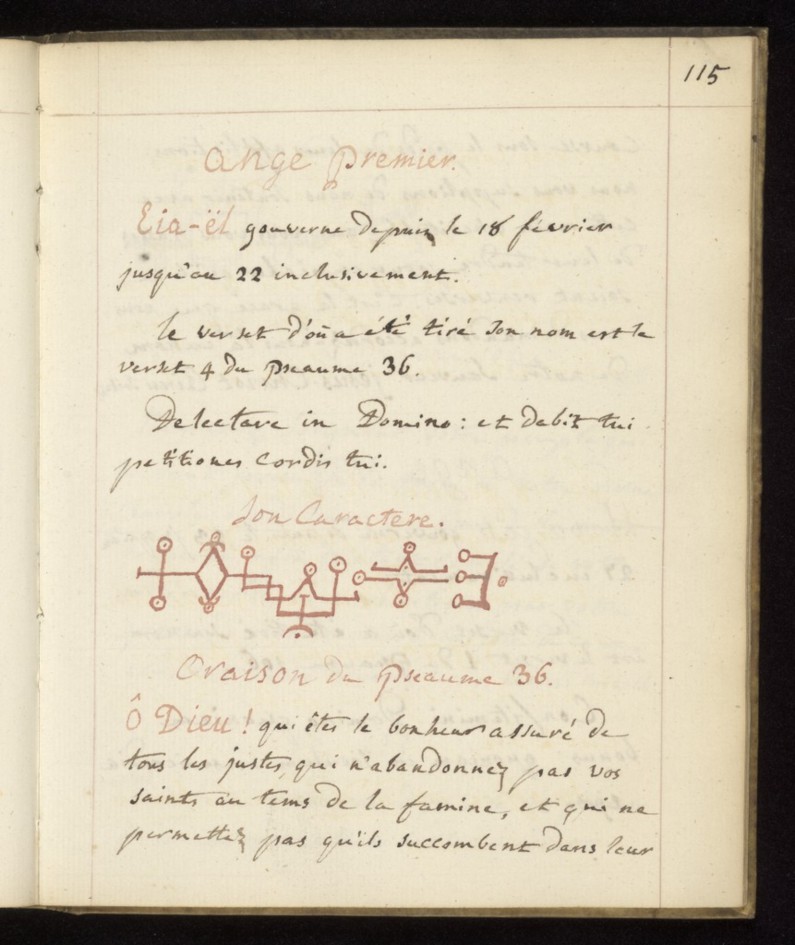 115
Ange Premier.
Eia-ël gouverne depuis le 18 février
jusqu'au 22 inclusivement.
le verset d'où a été tiré son nom est le
verset 4 du pseaume 36.
Delectare in Domino : et dabit tui
petitiones Cordis tui.
Son Caractere.
Oraison du pseaume 36.
Ô Dieu ! qui êtes le bonheur assuré de
tous les justes, qui n'abandonnez pas vos
saints au tems de la famine, et qui ne
permettez pas qu'ils succombent dans leur